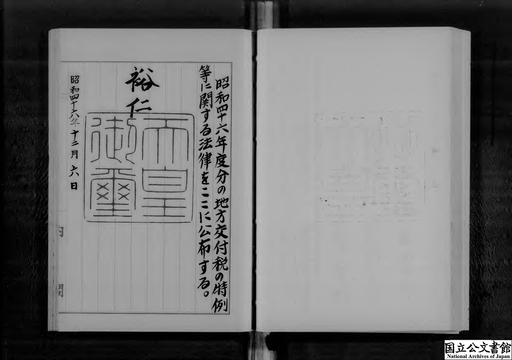 昭和四十六年度分の地方交付税の特例
等に関する法律をここに公布する。
裕仁
天皇
御璽
昭和四十六年十二月六日
国立公文書館
National Archives of Japan